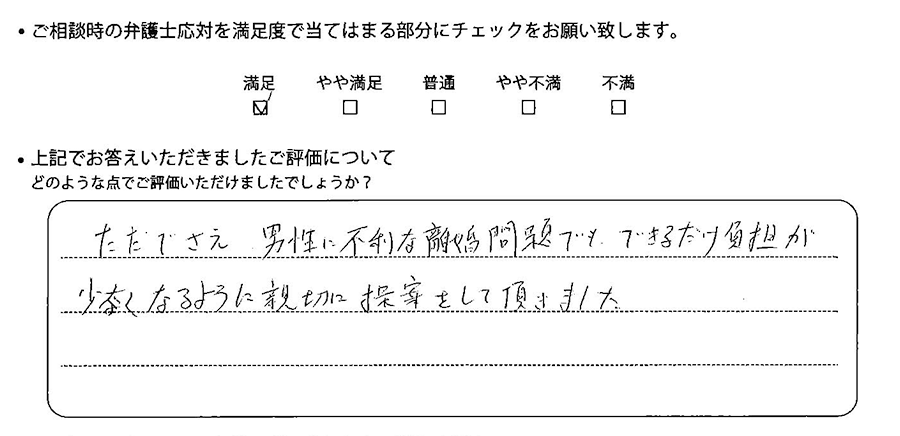 ・ご相談時の弁護士応対を満足度で当てはまる部分にチェックをお願い致します。
満足 やや満足 普通 やや不満 不満
・上記でお答えいただきましたご評価について
どのような点でご評価いただけましたでしょうか？
ただでさえ 男性に不利な離婚問題でも、できるだけ負担が
少なくなるように親切に提案をして頂きました